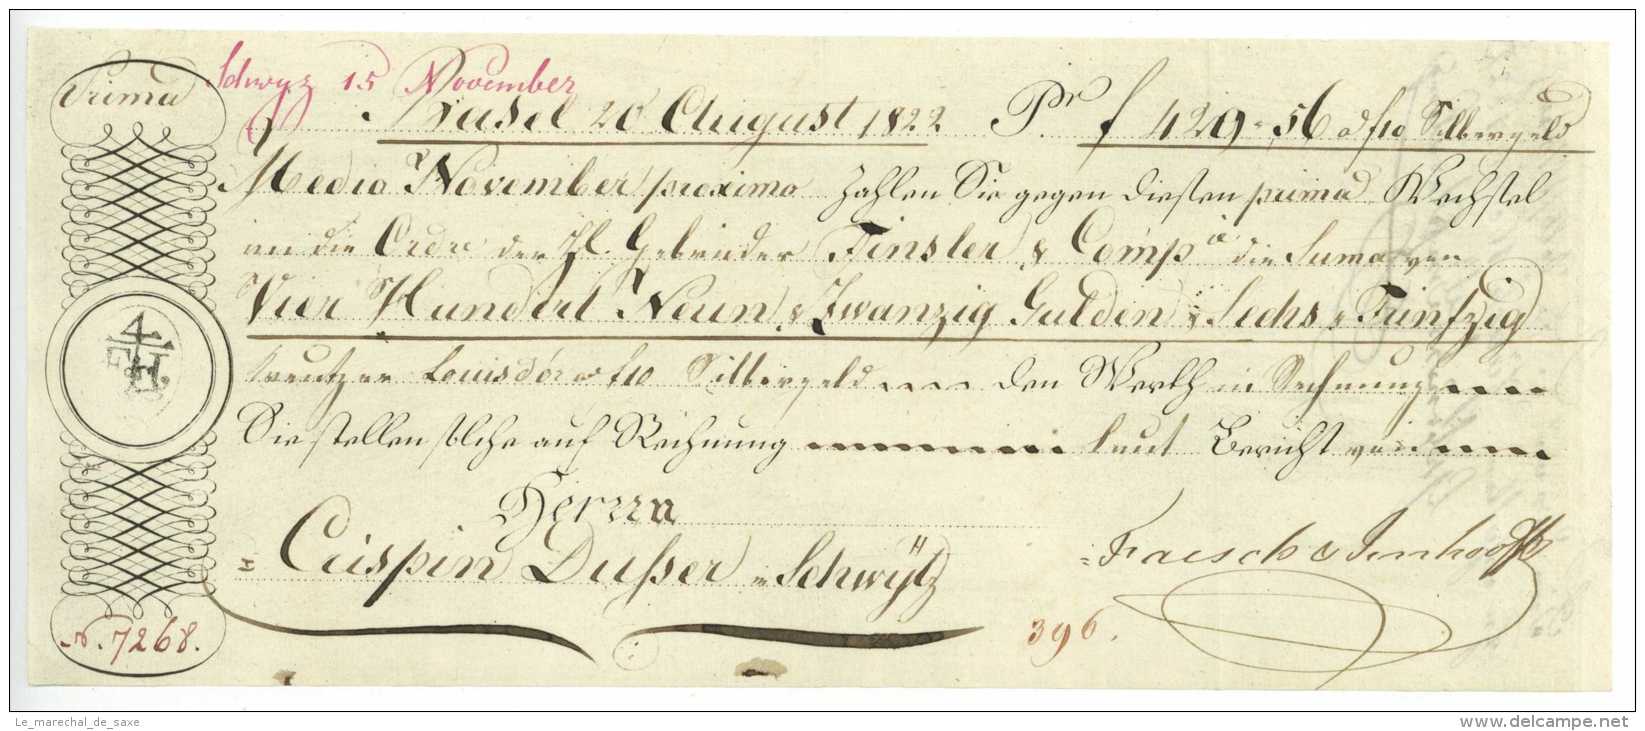 Schwyz 15 November
Prima
Basel 20 August 1822. Pr f 429 = 56 a f10 Silbergeld
Medio November proximo zahlen Sie gegen diesen prima Wechsel
an die Ordre der H. Gebrüder Finsler & Comp.a die Suma von
Vier Hundert Neun & Zwanzig Gulden & Sechs & Fünfzig
Kreutzer Louisd'or a f10 Silbergeld den Werth in Rechnung
Sie stellen solche auf Rechnung laut Bericht von
4 F H
Herrn
Crispin Dusser in Schwÿtz
Faesch & Imhooff
N. 7268.
396.
Le_marechal_de_saxe
www.delcampe.net